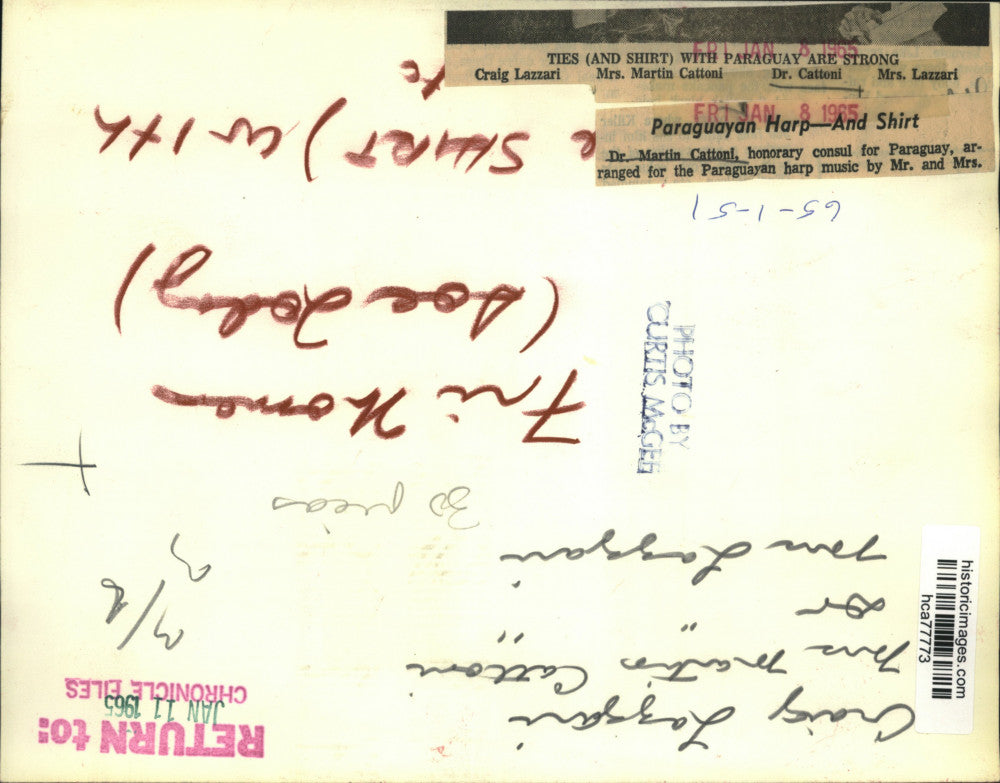 FRI JAN 8 1965
TIES (AND SHIRT) WITH PARAGUAY ARE STRONG
Craig Lazzari Mrs. Martin Cattoni Dr. Cattoni Mrs. Lazzari
FRI JAN 8 1965
Paraguayan Harp—And Shirt
Dr. Martin Cattoni, honorary consul for Paraguay, ar-
ranged for the Paraguayan harp music by Mr. and Mrs.
65-1-51
SHIRT) WITH
(Doe Today)
Fri Women
PHOTO BY
CURTIS McGEE
30 picas
Craig Lazzari
Mrs Martin Cattoni
Dr " "
Mrs Lazzari
historicimages.com
hca77773
RETURN to:
JAN 11 1965
CHRONICLE FILES